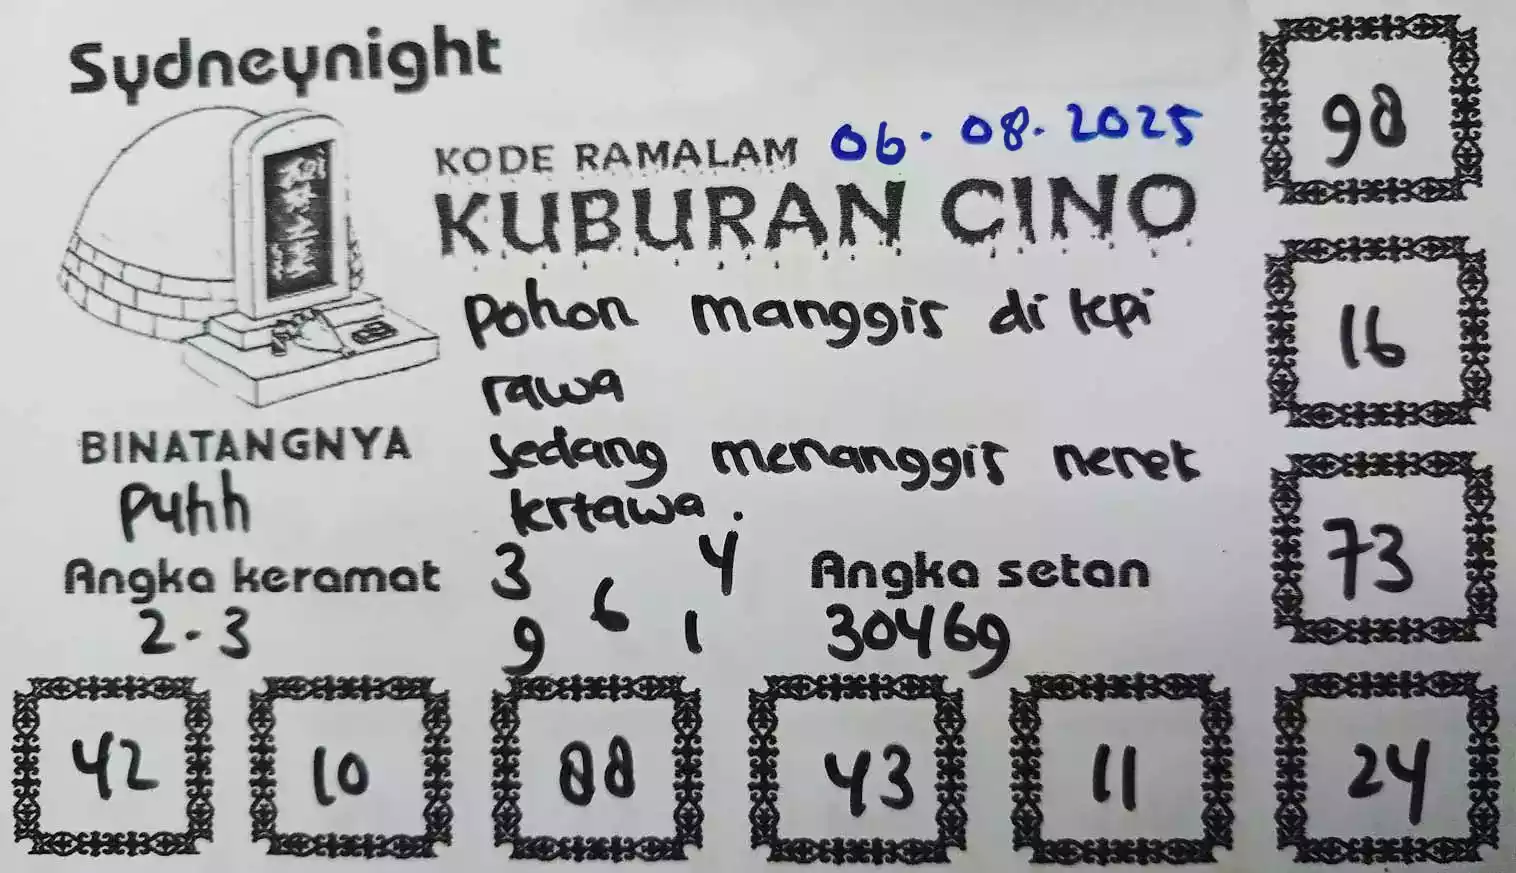 Sydneynight
KODE RAMALAM 06.08.2025
KUBURAN CINO
Pohon manggis di tepi
rawa
sedang menanggis nenek
ketawa.
BINATANGNYA
Puhh
Angka keramat
2.3
3 4
6
9 1
Angka setan
30469
98
16
73
42 10 88 43 11 24